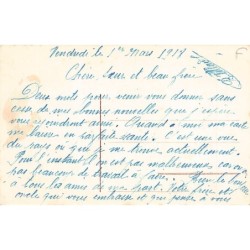 Vendredi le 1er Mars 1918
Chère Sœur et beau frère
Deux mots pour venir vous donner sans
cesse de mes bonnes nouvelles que j'espère
vous rejoindront ainsi. Quand à moi ma carte
me laisse en parfaite santé. C'est une vue
du pays où que je me trouve actuellement.
Pour l'instant on est pas malheureux, on a
pas beaucoup de travail à faire.
à tous les amis de ma part. Votre frère
qui vous embrasse et qui pense à vous